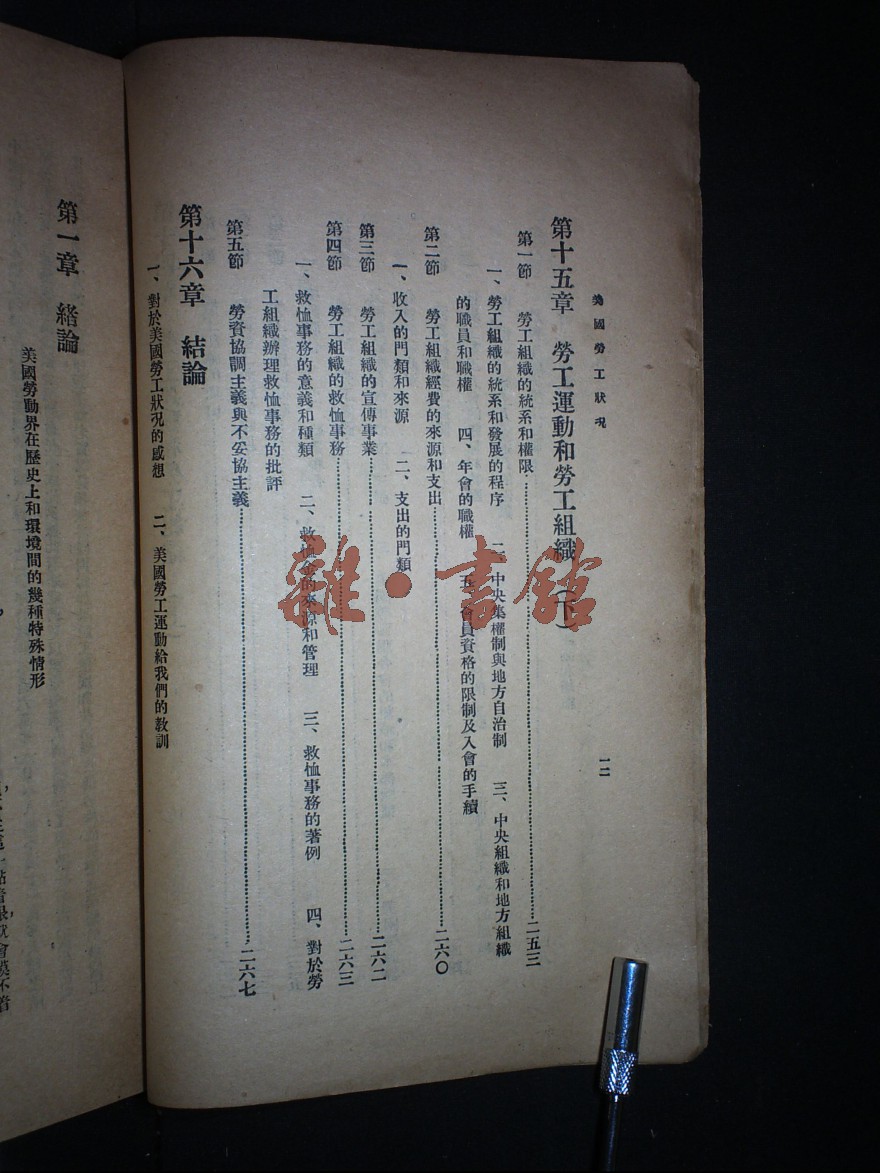 美國勞工狀况
一二
第十五章 勞工運動和勞工組織（下）
第一節 勞工組織的統系和權限……二五三
一、勞工組織的統系和發展的程序 二、中央集權制與地方自治制 三、中央組織和地方組織
的職員和職權 四、年會的職權 五、會員資格的限制及入會的手續
第二節 勞工組織經費的來源和支出……二六〇
一、收入的門類和來源 二、支出的門類
第三節 勞工組織的宣傳事業……二六二
第四節 勞工組織的救恤事務……二六三
一、救恤事務的意義和種類 二、救恤金的來源和管理 三、救恤事務的著例 四、對於勞
工組織辦理救恤事務的批評
第五節 勞資協調主義與不妥協主義……二六七
第十六章 結論
一、對於美國勞工狀况的感想 二、美國勞工運動給我們的教訓
第一章 緒論
美國勞動界在歷史上和環境間的幾種特殊情形
雜·書館